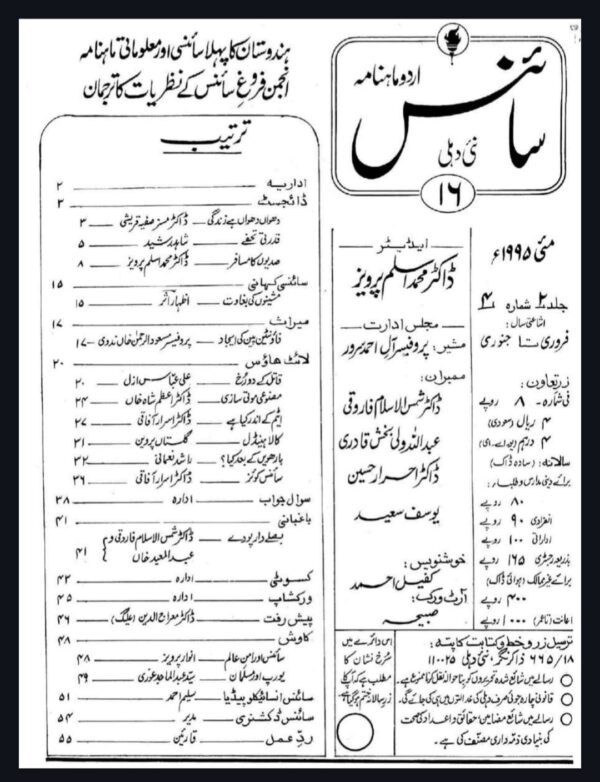 ہندوستان کا پہلا سائنسی اور معلوماتی ماہنامہ
انجمن فروغ سائنس کے نظریات کا ترجمان
اردو ماہنامہ
سائنس
نئی دہلی
۱۶
ترتیب
اداریہ ۲
ڈائجسٹ ۳
دھواں دھواں ہے زندگی ڈاکٹر مسز صفیہ قریشی ۳
قدرتی تحفے شاہد رشید ۵
صدیوں کا مسافر ڈاکٹر محمد اسلم پرویز ۸
سائنسی کہانی ۱۵
مشینوں کی بغاوت اظہار اثر ۱۵
میراث ۱۷
فاؤنٹین پین کی ایجاد پروفیسر مسعود الرحمن خاں ندوی ۱۷
لائٹ ہاؤس ۲۰
قاتل کے دو رُخ علی عباس ازل ۲۰
مصنوعی موتی سازی ڈاکٹر اعظم شاہ خاں ۲۴
ایٹم کے اندر کیا ہے ڈاکٹر اسرار آفاقی ۲۷
کالا ہینڈل گلستاں پروین ۳۱
بارھویں کے بعد کیا؟ راشد نعمانی ۳۲
سائنس کوئز ڈاکٹر اسرار آفاقی ۳۶
سوال جواب ادارہ ۳۸
باغبانی ۴۱
پھلے دار پودے ڈاکٹر شمس الاسلام فاروقی و عبد المعید خاں ۴۱
کسوٹی ادارہ ۴۳
ورکشاپ ادارہ ۴۵
پیش رفت ڈاکٹر معراج الدین (علیگ) ۴۶
کاوش ۴۸
سائنس اور امن عالم انوار پرویز ۴۸
یورپ اور مسلمان سید عبد الماجد غوری ۴۹
سائنس انسائیکلوپیڈیا سلیم احمد ۵۱
سائنس ڈکشنری مدیر ۵۴
ردِّ عمل قارئین ۵۵
ایڈیٹر
ڈاکٹر محمد اسلم پرویز
مجلس ادارت
مشیر: پروفیسر آل احمد سرور
ممبران:
ڈاکٹر شمس الاسلام فاروقی
عبد اللہ ولی بخش قادری
ڈاکٹر احرار حسین
یوسف سعید
خوشنویس:
کفیل احمد
آرٹ ورک:
صبیحہ
مئی ۱۹۹۵ء
جلد ۲ شمارہ ۴
اشاعتی سال:
فروری تا جنوری
زر تعاون:
فی شمارہ ۸ روپے
۴ ریال (سعودی)
۴ درہم (یو۔اے۔ای)
سالانہ: (سادہ ڈاک)
برائے دینی مدارس و طلباء:
۸۰ روپے
انفرادی ۹۰ روپے
اداراتی ۱۰۰ روپے
بذریعہ رجسٹری ۱۶۵ روپے
برائے غیر ممالک (ہوائی ڈاک)
۴۰۰ روپے
اعانت (تاعمر) ۱۰۰۰ روپے
اس دائرے میں
سُرخ نشان کا
مطلب ہے کہ آپکا
زر سالانہ ختم ہو گیا ہے
ترسیل زر و خط و کتابت کا پتہ:
۶۶۵/۱۸ ذاکر نگر، نئی دہلی ۱۱۰۰۲۵
رسالے میں شائع شدہ تحریروں کو بنا حوالہ نقل کرنا ممنوع ہے۔
قانونی چارہ جوئی صرف دہلی کی عدالتوں میں ہی کی جائے گی۔
رسالے میں شائع مضامین، حقائق و اعداد کی صحت
کی بنیادی ذمہ داری مصنف کی ہے۔